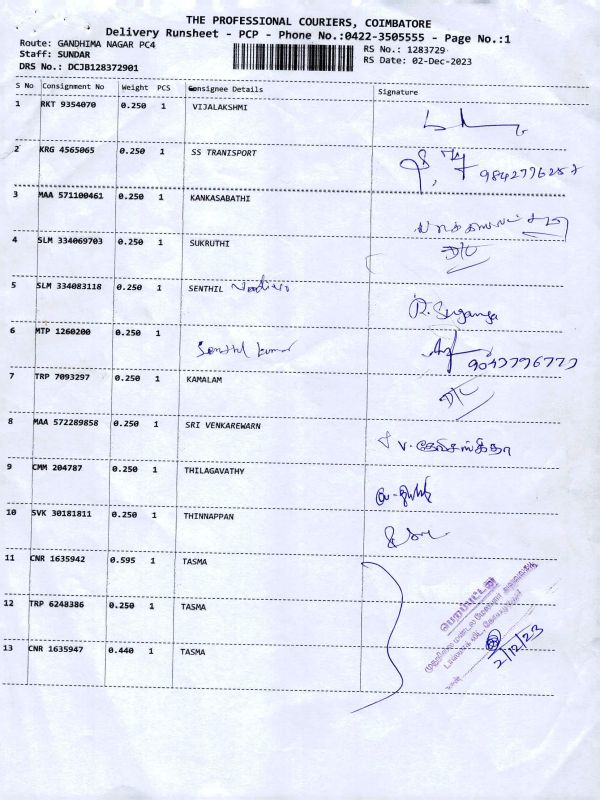 THE PROFESSIONAL COURIERS, COIMBATORE
Delivery Runsheet - PCP - Phone No.:0422-3505555 - Page No.:1
Route: GANDHIMA NAGAR PC4
RS No.: 1283729
Staff: SUNDAR
RS Date: 02-Dec-2023
DRS No.: DCJB128372901
S No Consignment No Weight PCS Consignee Details Signature
1 RKT 9354070 0.250 1 VIJALAKSHMI
2 KRG 4565065 0.250 1 SS TRANISPORT 9842776257
3 MAA 571100461 0.250 1 KANKASABATHI
4 SLM 334069703 0.250 1 SUKRUTHI D/L
5 SLM 334083118 0.250 1 SENTHIL R. Suganya
6 MTP 1260200 0.250 1 Senthil kumar 9043796773
7 TRP 7093297 0.250 1 KAMALAM D/L
8 MAA 572289858 0.250 1 SRI VENKAREWARN
9 CMM 204787 0.250 1 THILAGAVATHY
10 SVK 30181811 0.250 1 THINNAPPAN
11 CNR 1635942 0.595 1 TASMA
12 TRP 6248386 0.250 1 TASMA
13 CNR 1635947 0.440 1 TASMA
பெறப்பட்டது
2/12/23